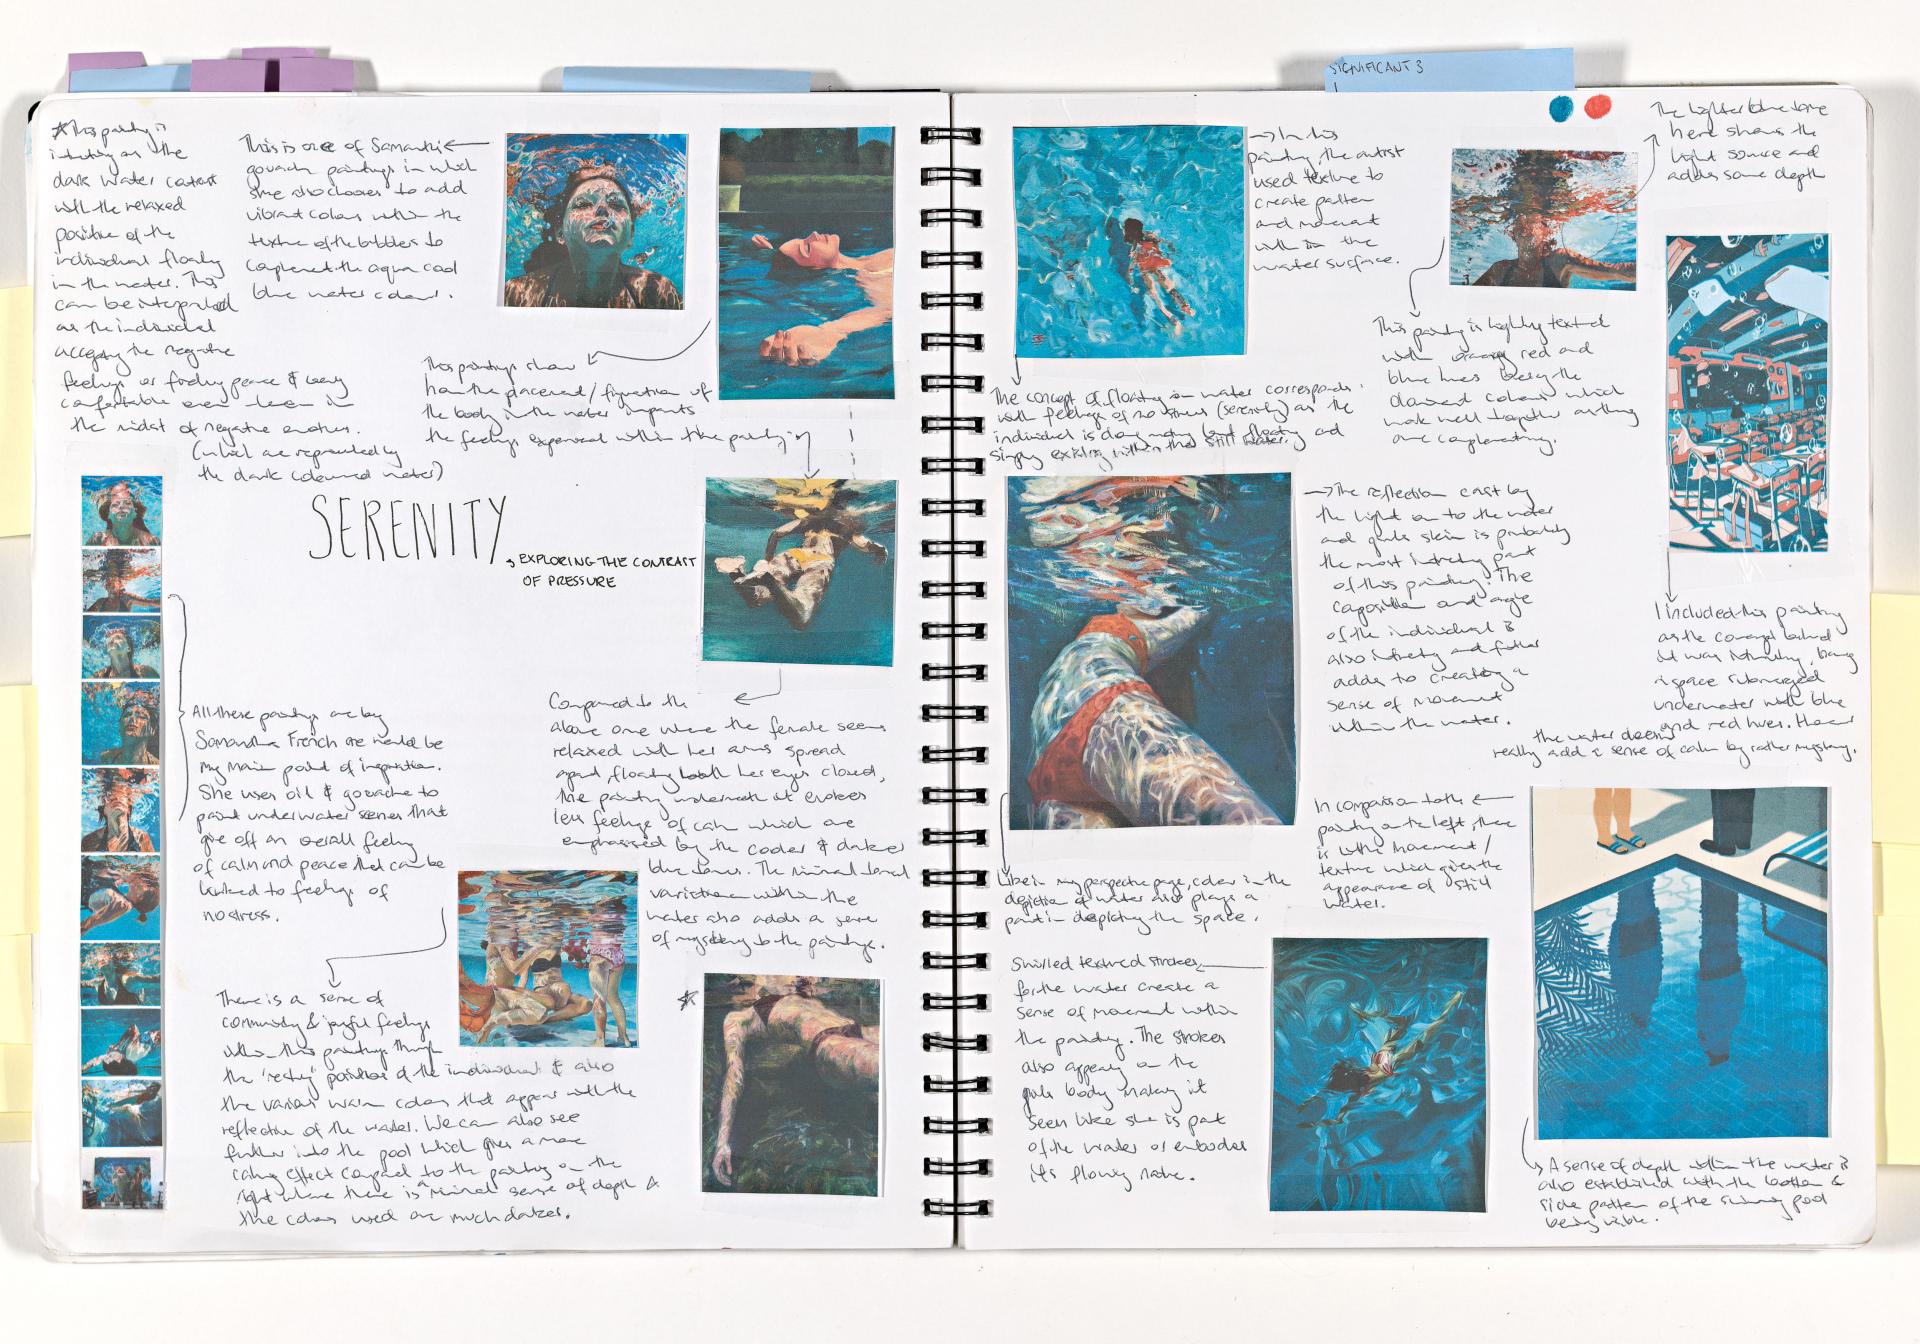 SIGNIFICANT 3
*This painting is
interesting as the
dark water contrast
with the relaxed
position of the
individual floating
in the water. This
can be interpreted
as the individual
accepting the negative
feelings or finding peace & being
comfortable even in
the midst of negative emotions.
(which are represented by
the dark coloured water)
This is one of Samantha
gouache paintings in which
she also chooses to add
vibrant colours within the
texture of the bubbles to
complement the aqua cool
blue water colour.
This paintings show
how the placement / figuration of
the body in the water impacts
the feelings expressed within the painting
SERENITY
EXPLORING THE CONTRAST
OF PRESSURE
All these paintings are by
Samantha French who would be
my main point of inspiration.
She uses oil & gouache to
paint underwater scenes that
give off an overall feeling
of calm and peace that can be
linked to feelings of
no stress.
Compared to the
above one where the female seems
relaxed with her arms spread
apart, floating with her eyes closed,
the painting underneath it evokes
less feelings of calm which are
emphasised by the cooler & darker
blue tones. The minimal tonal
variation within the
water also adds a sense
of mystery to the paintings.
There is a sense of
community & joyful feelings
within this paintings through
the 'resting' position of the individual & also
the various warm colours that appear with the
reflection of the water. We can also see
further into the pool which gives a more
calming effect compared to the painting on the
right where there is a minimal sense of depth &
the colours used are much darker.
*
→ In this
painting, the artist
used texture to
create pattern
and movement
within the
water surface.
The concept of floating in water corresponds
with feelings of no stress (serenity) as the
individual is doing nothing but floating and
simply existing within the still water.
The lighter blue tone
here shows the
light source and
adds some depth
This painting is highly textured
with orangey red and
blue hues being the
dominant colours which
work well together as they
are complementing.
→ The reflection cast by
the light on to the water
and girls skin is probably
the most interesting part
of this painting. The
composition and angle
of the individual is
also interesting and further
adds to creating a
sense of movement
within the water.
I included this painting
as the concept behind
it was interesting, being
a space submerged
underwater with blue
and red hues. However
the water doesn't
really add a sense of calm but rather mystery.
In comparison to the
painting on the left, there
is little movement /
texture which gives the
appearance of still
water.
Like in my perspective page, colour in the
depiction of water also plays a
part in depicting the space.
Swirled textured strokes
for the water create a
sense of movement within
the painting. The strokes
also appear on the
girls body making it
seem like she is part
of the water or embodies
its flowing nature.
A sense of depth within the water is
also established with the bottom &
side pattern of the swimming pool
being visible.